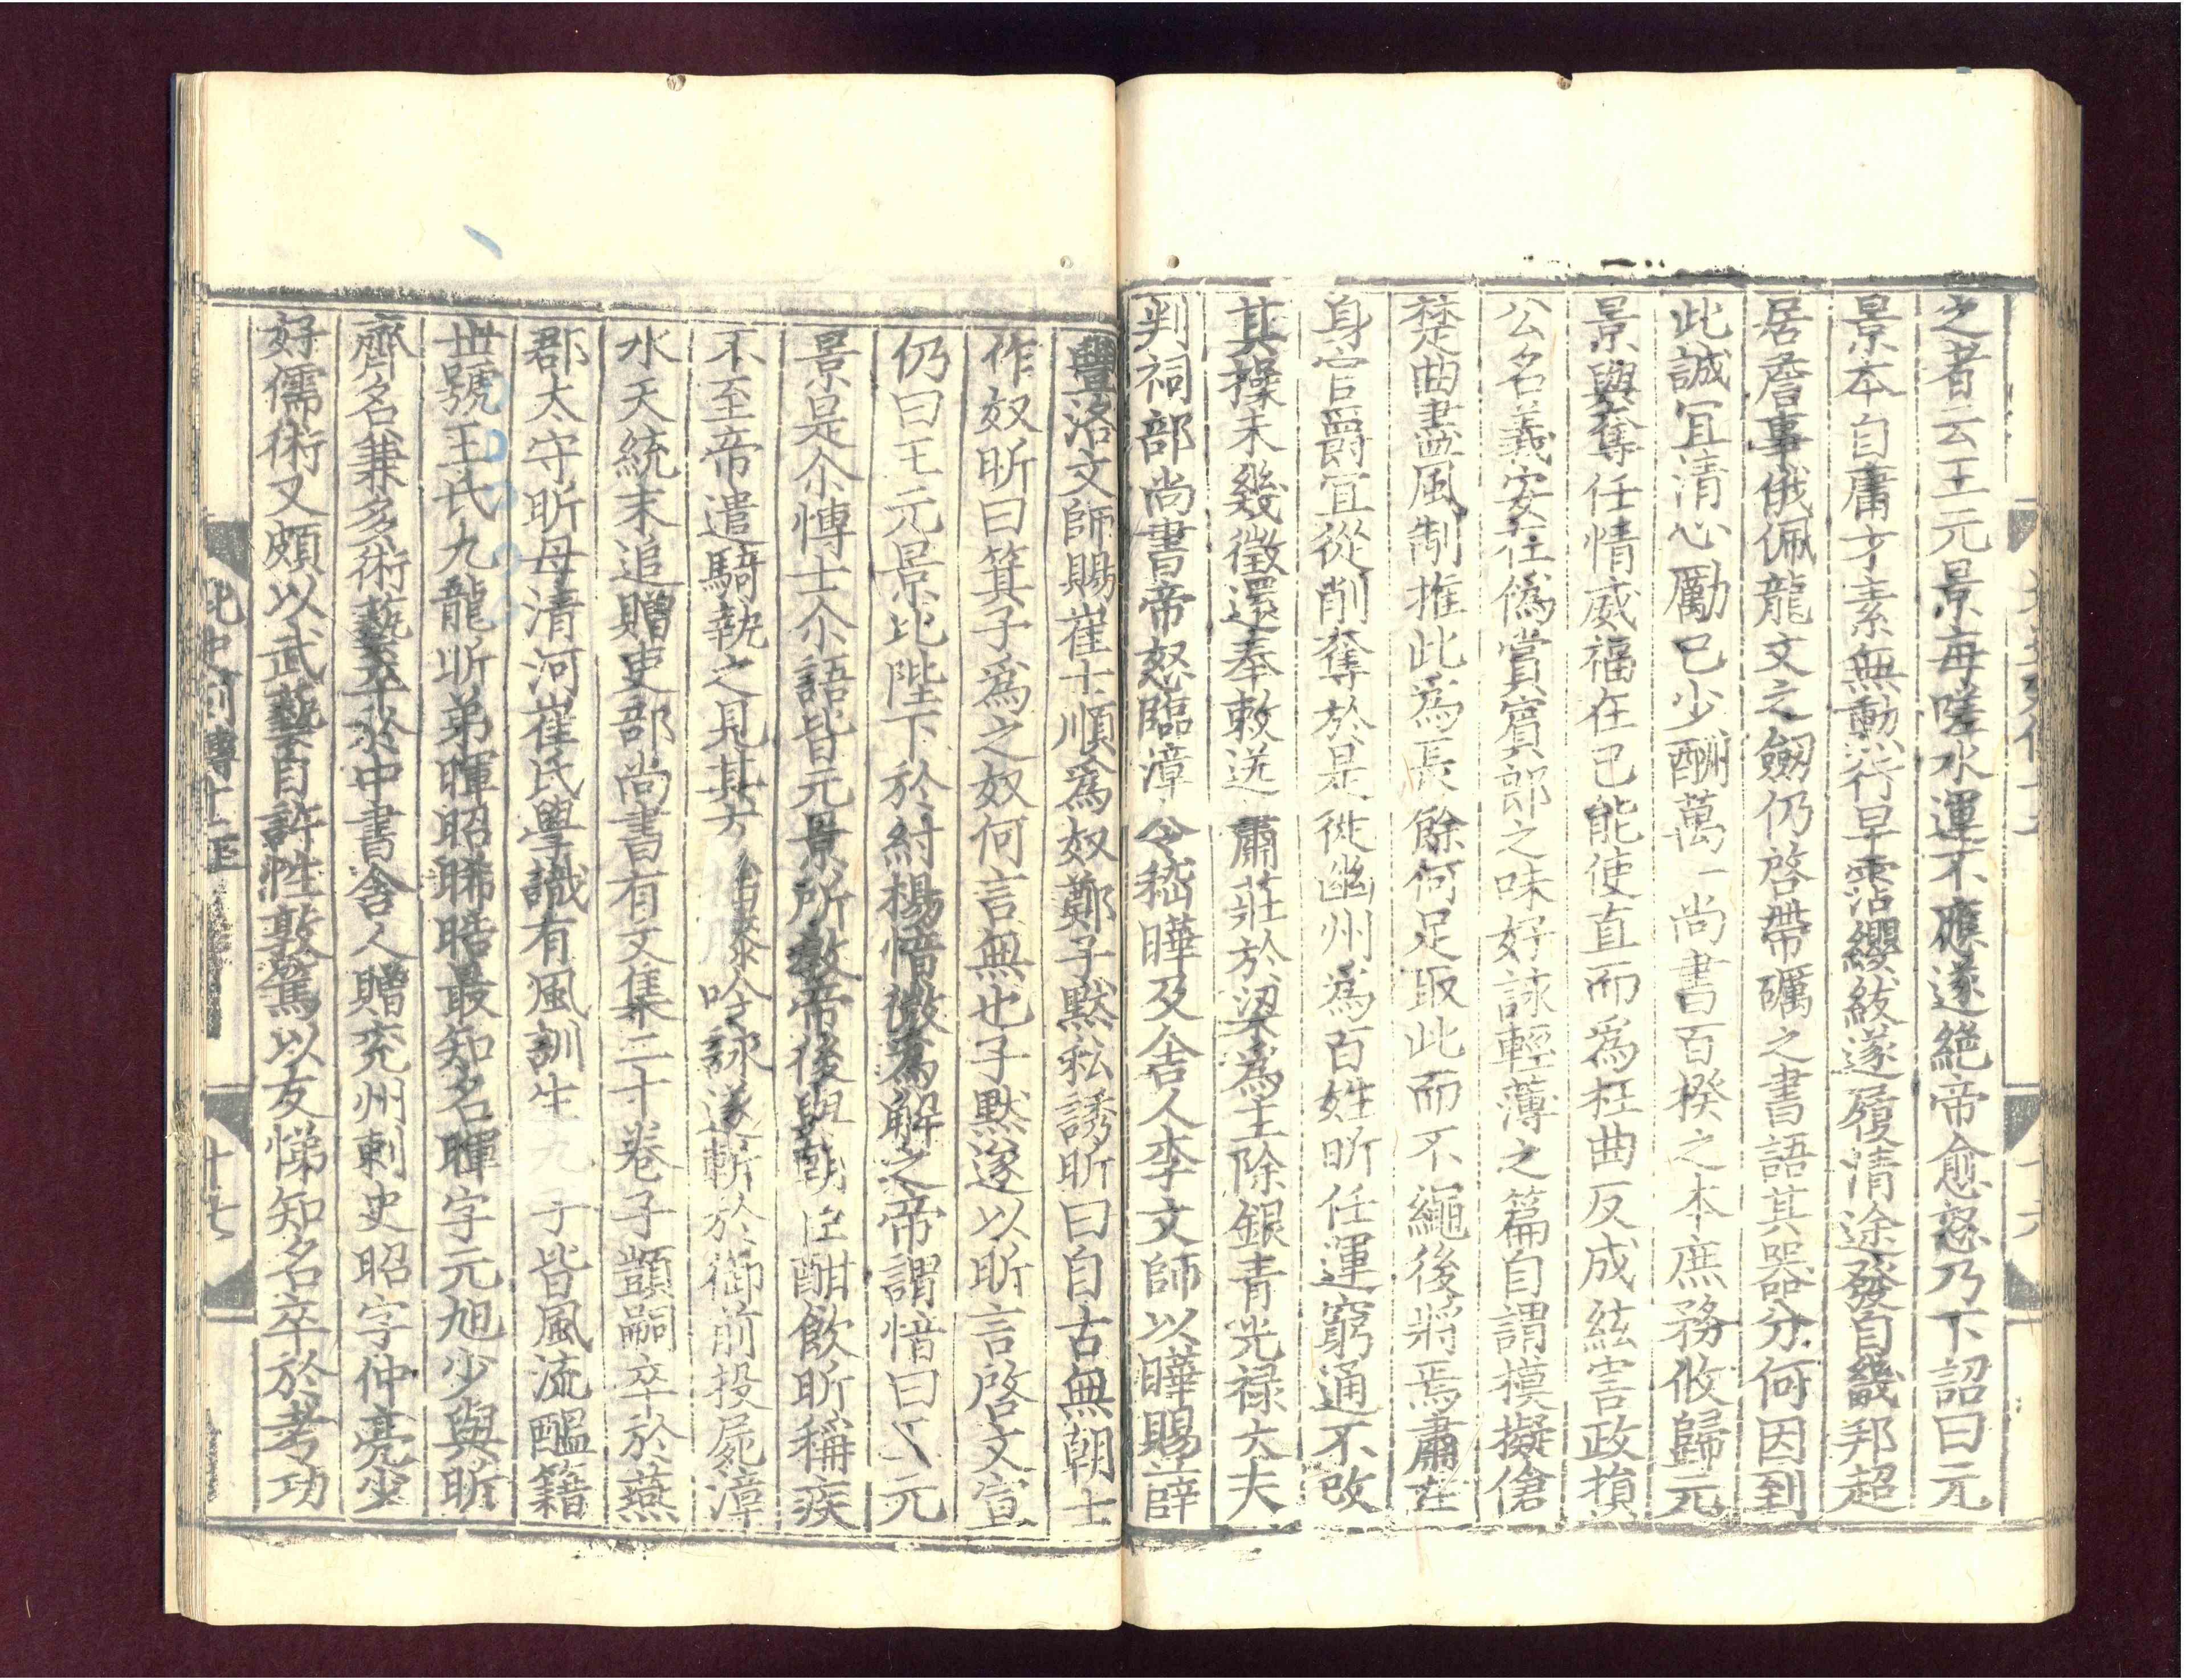 之者云王元景每嗟水運不應遂絶帝愈怒乃下詔曰元
景本自庸才素無動行早霑纓紱遂履清途發自畿邦超
居詹事俄佩龍文之劒仍啓帶礪之書語其器分何因到
此誠冝清心勵己少酬萬一尚書百揆之本庶務攸歸元
景與奪任情威福在己能使直而爲枉曲反成絃害政損
公名義安在僞賞賓郎之味好詠輕薄之篇自謂模擬傖
楚曲盡風制推此爲長餘何足取此而不繩後將焉肅在
身官爵冝從削奪於是徙幽州爲百姓昕任運窮通不改
其操未幾徵還奉敕送蕭莊於梁爲主除銀青光祿大夫
判祠部尚書帝怒臨漳令嵇曄及舍人李文師以曄賜薛
豐洛文師賜崔士順爲奴鄭子默私誘昕曰自古無朝士
作奴昕曰箕子爲之奴何言無也子默遂以昕言啓文宣
仍曰王元景比陛下於紂楊愔微爲解之帝謂愔曰〱元
景是尒愽士尒語皆元景所敎帝後與朝臣酣飲昕稱疾
不至帝遣騎執之見其方揺膝吟詠遂斬於御前投屍漳
水天統末追贈吏部尚書有文集二十卷子顗嗣卒於燕
郡太守昕母清河崔氏學識有風訓生九子皆風流醞籍
世號王氏九龍昕弟暉昭晞晧最知名暉字元旭少與昕
齊名兼多術藝卒於中書舍人贈兖州刺史昭字仲亮少
好儒術又頗以武藝自許性敦篤以友悌知名卒於考功
北史列傳十二
十七
十六